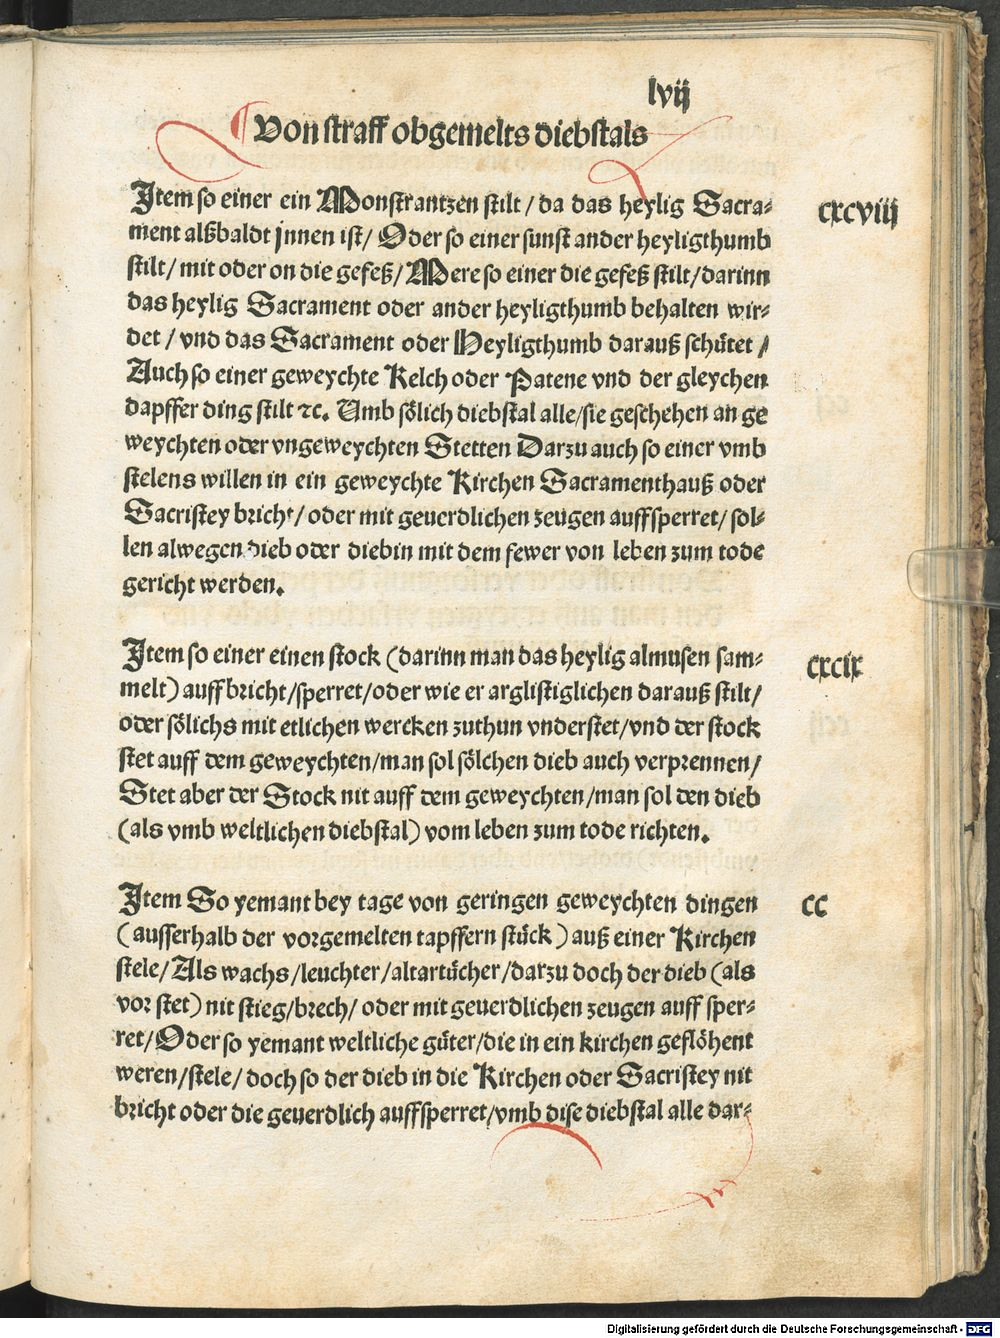 lvij
¶ Von straff obgemelts diebstals
Item so einer ein Monstrantzen stilt / da das heylig Sacra⸗
cxcviij
ment alßbaldt jnnen ist / Oder so einer sunst ander heyligthumb
stilt / mit oder on die gefeß / Mere so einer die gefeß stilt / darinn
das heylig Sacrament oder ander heyligthumb behalten wir⸗
det / vnd das Sacrament oder Heyligthumb darauß schütet /
Auch so einer geweychte Kelch oder Patene vnd der gleychen
dapffer ding stilt ꝛc. Umb sölich diebstal alle / sie geschehen an ge
weychten oder vngeweychten Stetten Darzu auch so einer vmb
stelens willen in ein geweychte Kirchen Sacramenthauß oder
Sacristey bricht / oder mit geuerdlichen zeugen auffsperret / sol⸗
len alwegen dieb oder diebin mit dem fewer von leben zum tode
gericht werden.
Item so einer einen stock (darinn man das heylig almusen sam⸗
cxcix
melt) auffbricht / sperret / oder wie er arglistiglichen darauß stilt /
oder sölichs mit etlichen wercken zuthun vnderstet / vnd der stock
stet auff dem geweychten / man sol sölchen dieb auch verprennen /
Stet aber der Stock nit auff dem geweychten / man sol den dieb
(als vmb weltlichen diebstal) vom leben zum tode richten.
Item So yemant bey tage von geringen geweychten dingen
cc
(ausserhalb der vorgemelten tapffern stück) auß einer Kirchen
stele / Als wachs / leuchter / altartücher / darzu doch der dieb (als
vor stet) nit stieg / brech / oder mit geuerdlichen zeugen auff sper⸗
ret / Oder so yemant weltliche güter / die in ein kirchen geflöhent
weren / stele / doch so der dieb in die Kirchen oder Sacristey nit
bricht oder die geuerdlich auffsperret / vmb dise diebstal alle dar⸗
Digitalisierung gefördert durch die Deutsche Forschungsgemeinschaft - DFG